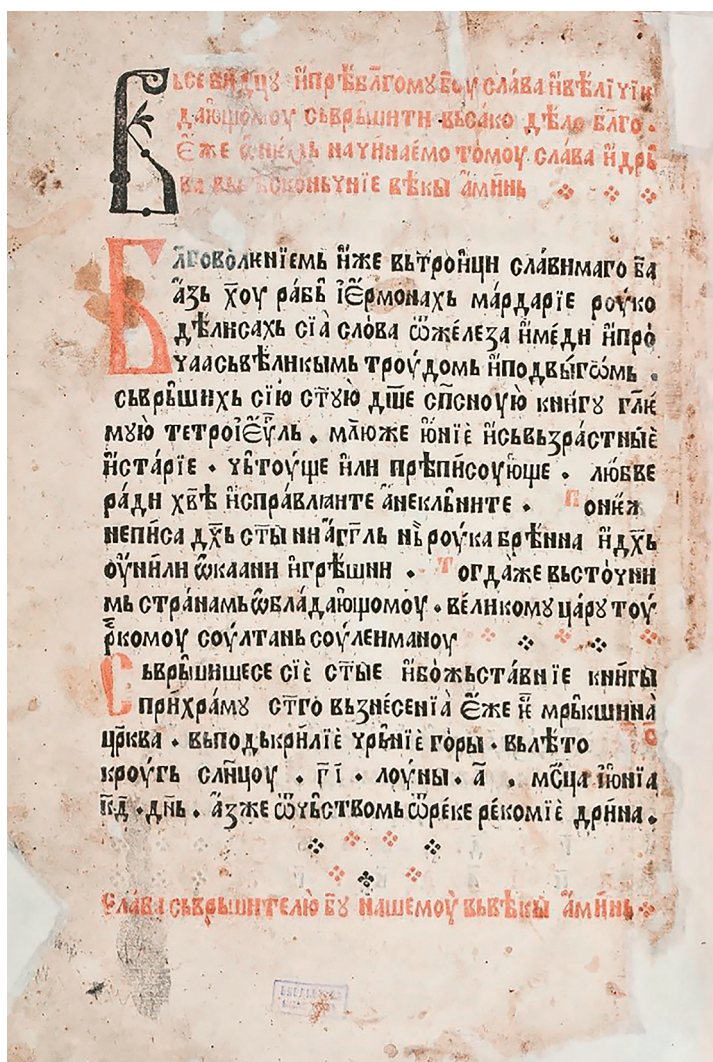 Вьсевидцу и҆прѣбл҃гомꙋбо҃у сла́ва и҆вѣлїчїи
даю́щомоу сьврьшити вьса́ко дѣло бл҃го.
Е҆же ѿ начинаемо томоу сла́ва и҆дрь
жа́ва вьбесконьчнїе вѣкы а҆минь
Бл҃говоле́нїемь и҆же вьтрои҆ци сла́вимаго ба҃
а҆зь хо҃у ра́бь і҆е҆рмонахь ма́рдарїе роу́ко
дѣлисахь сїа̀ сло́ва ѿже́леза и҆ме́ди и҆про́
чаасьвѣликымь троу́домь и҆подвы́гѡмь .
сьврьшихь сїю ст҃ую̀ дш҃е сп҃сноу́ю кни́гу гл҃е
мую̀ тетрої҆е҆ѵль . мл҃юже ю҆нїе и҆сьвьзрастны́е
и҆ста́рїе . чьтоу́ще и҆ли прѣпи́соую҆ще . лю́бве
ра́ди хв҃ѣ и҆спра́влꙗите а҆некльни́те . Пони́еж
непи́са дх҃ь ст҃ы ниа҆гг҃ль нь̀ роу́ка брѣнна и҆дх҃ь
оу҆ни́ли ѡ҆каани и҆грѣшни . Тогда́же вьсто́чни
мь стра́намь ѡ҆блада́ющомоу . ве́ликому ца́ру тоу́
рькомоу соу́лтань соу́леиманоу
Сьврьшишесе сїѐ ст҃ые и҆бо́жьста́внїе кни́гы
при́хра́му ст҃го вьзне́сенїа̀ е҆же е҆ мрькшина̀
цр҃ква . вьподькри́лїѐ чрьнїѐ го́ры . вьлѣто
кроу́гь сл҃нцоу . г҃і . лоу́ны . а҃ . мс҃ца ию́нїа
к҃д . дн҃ь . а҆зже ѿчьствомь ѿре́ке ре́комїѐ дри́на .
Сла́ва сьврьшителю̀ бг҃у на́шемоу̀ вьвѣкы а҆ми́нь